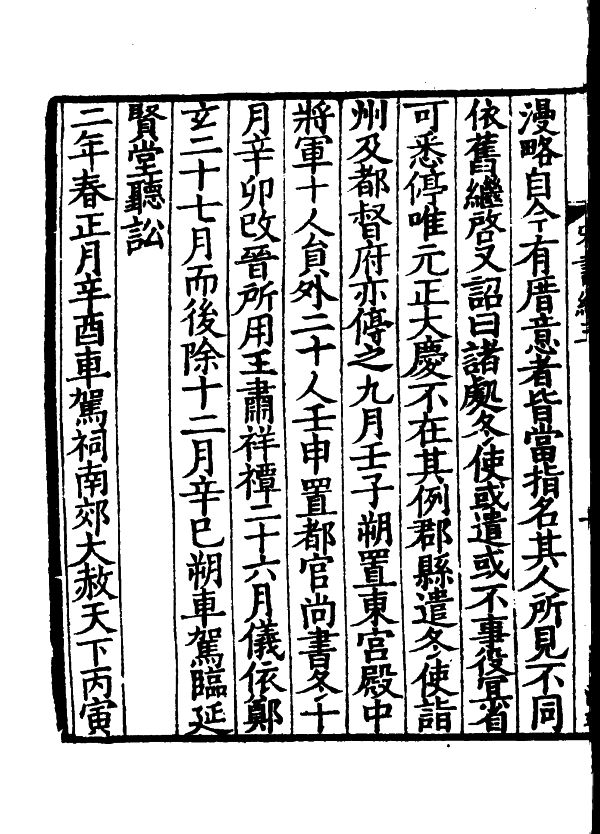 漫略自今有厝意者皆當指名其人所見不同
依舊繼啓又詔曰諸處冬使或遣或不事役宜省
可悉停唯元正大慶不在其例郡縣遣冬使詣
州及都督府亦停之九月壬子朔置東宮殿中
將軍十人負外二十人壬申置都官尚書冬十
月辛卯改晉所用王肅祥禫二十六月儀依鄭
玄二十七月而後除十二月辛巳朔車駕臨延
賢堂聽訟
二年春正月辛酉車駕祠南郊大赦天下丙寅